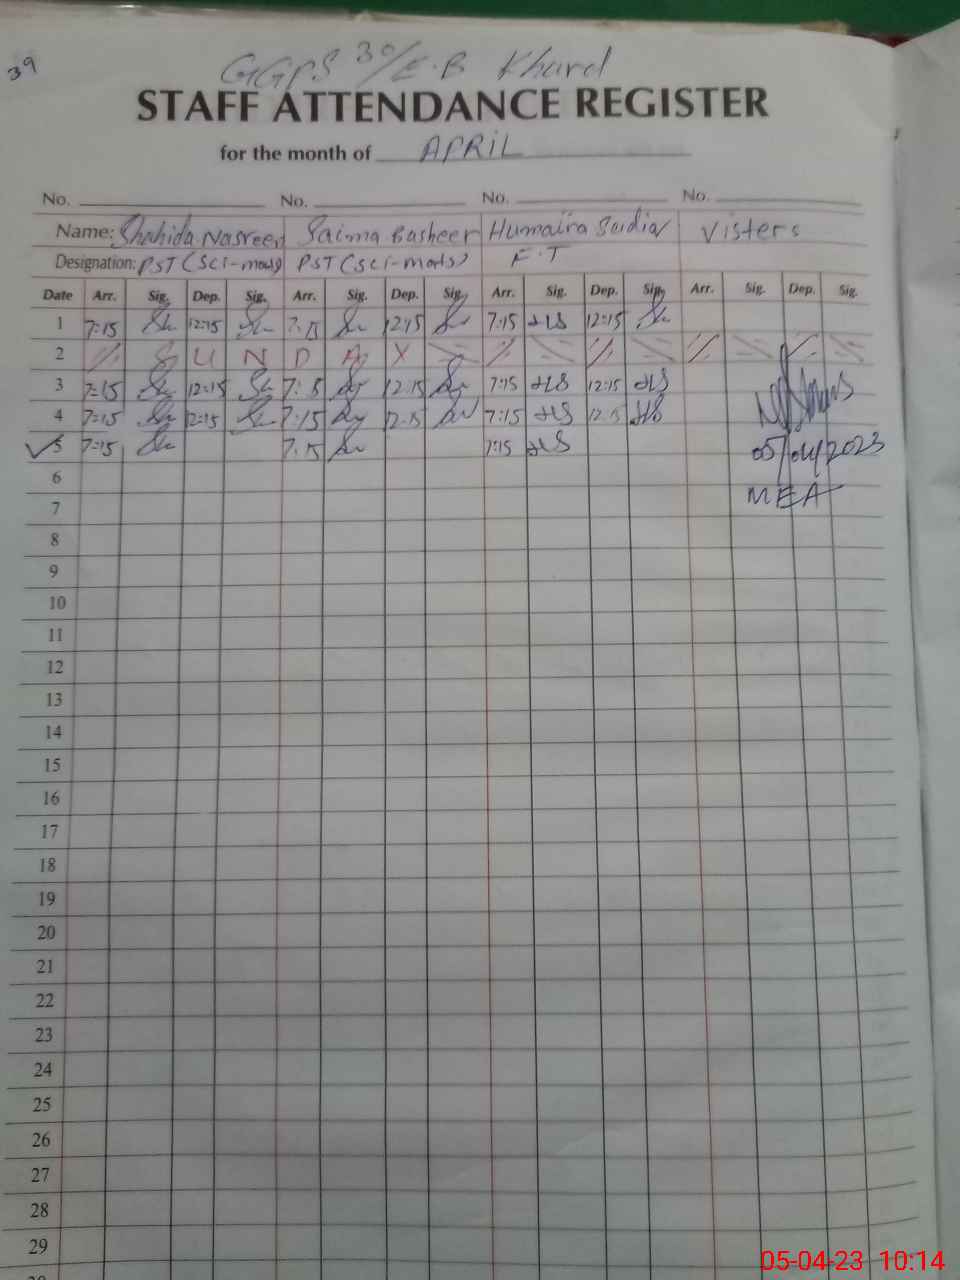 39
GGPS 30/E.B Kharl
STAFF ATTENDANCE REGISTER
for the month of APRIL
No. No. No. No.
Name: Shahida Nasreen Saima Basheer Humaira Sadia Visters
Designation: PST (Sci-mats) PST (Sci-mats) F.T
Date Arr. Sig. Dep. Sig. Arr. Sig. Dep. Sig. Arr. Sig. Dep. Sig. Arr. Sig. Dep. Sig.
1 7:15 12:15 7:15 12:15 7:15 HS 12:15
2 S U N D A Y
3 7:15 12:15 7:15 12:15 7:15 HS 12:15 HS
4 7:15 12:15 7:15 12:15 7:15 HS 12:15 HS
5 7:15 7:15 7:15 HS 05/04/2023
6
7 MEA
8
9
10
11
12
13
14
15
16
17
18
19
20
21
22
23
24
25
26
27
28
29
05-04-23 10:14